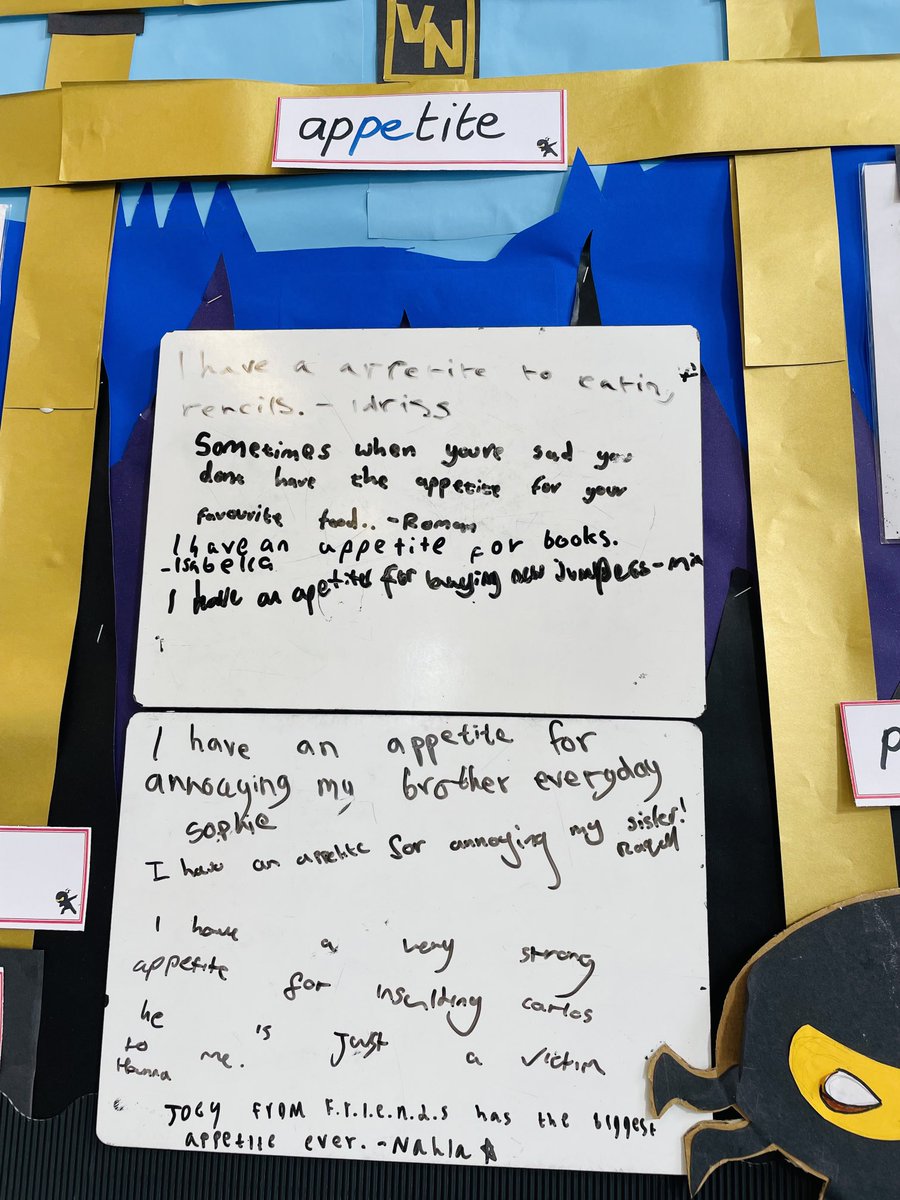 VN
appetite
I have a appetite to eating
pencils. - Idriss
Sometimes when youre sad you
dont have the appetite for your
favourite food.. - Roman
I have an appetite for books.
- Isabella
I have an apetites for buying new Jumpers - Mia
I have an appetite for
annoying my brother everyday
sophie
I have an appetite for annoying my sister!
I have a very strong
appetite for insulding carlos
he is just a victim
to me.
Hanna
JOEY FROM F.r.i.e.n.d.s has the biggest
appetite ever. - Nahla
p